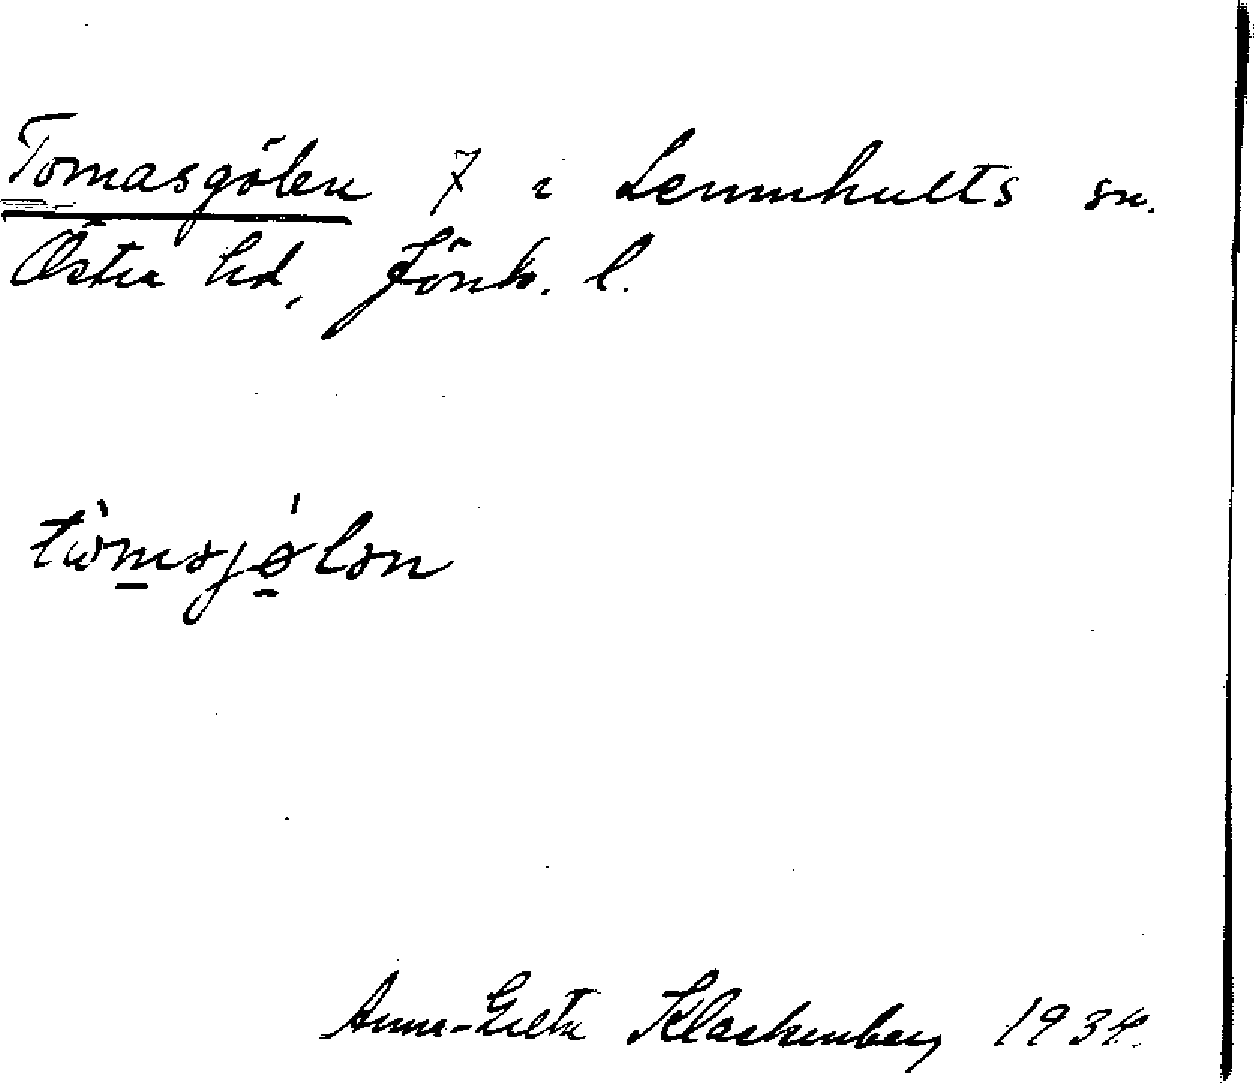 Tomasgölen 7 i Lemnhults sn.
Östra hd, Jönk. l.
tωmsjølən
Anna-Greta Klackenberg 1934.